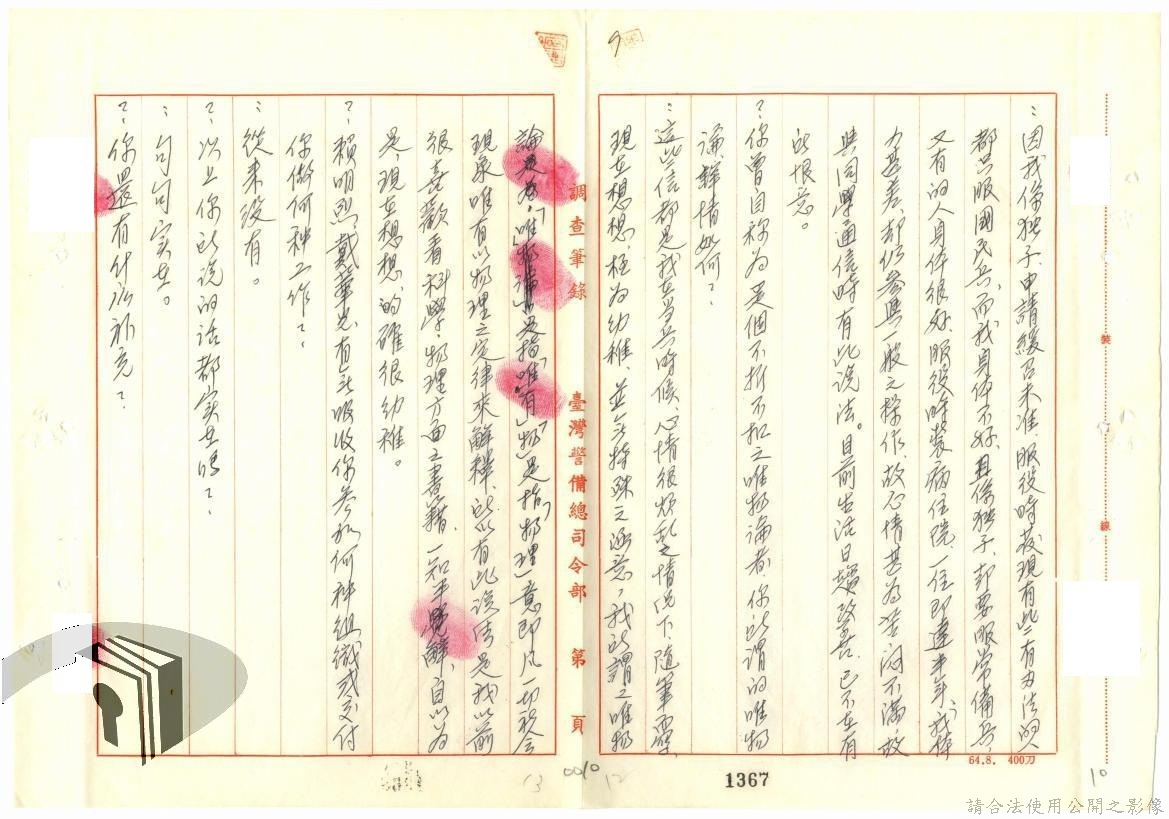 ：因我係獨子，申請緩召未准，服役時發現有些有辦法的人
都只服國民兵，而我身体不好，且係獨子，却要服常備兵，
又有的人身体很好，服役時裝病住院，一住即達半年，我体
力甚差，却仍參與一般之操作，故心情甚為
不滿，故
與同學通信時有此說法。目前生活日趨改善，已不在有
的恨意。
？你曾自称為是個不折不扣之唯物論者，你所謂的唯物
論詳情如何？
：這些信都是我在當兵時候，心情很煩乱之情況下隨筆寫，
現在想想，極為幼稚，並無特殊之涵意，我所謂之唯物
論是為，「唯物論」是指「唯有」物」是指「物理」意即凡一切社会
現象唯有以物理之定律來解釋，所以有此說法是我以前
很喜歡看科學，物理方面之書籍，一知半解，自以為
是，現在想想，的確很幼稚。
？賴明烈、戴華光有無吸收你參加何种組織或交付
你做何种工作？
：從來沒有。
？以上你所說的話都实在嗎？
：句句实在。
？你還有什広補充？
調查筆錄
臺灣警備總司令部
第 頁
裝
訂
線
64.8. 400刀
1367
0010
12
13
10
9
請合法使用公開之影像